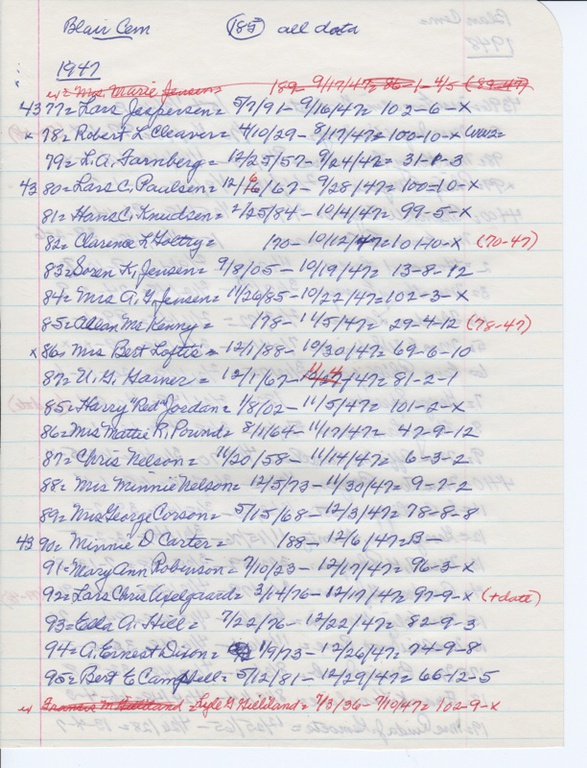 Blair Cem (185) all data
1947
Mrs. Marie Jensen 189- 9/17/47= 86-1-4/5 (89-47)
4377= Lars Jespersen= 5/7/91- 9/16/47= 102-6-x
x 78= Robert L Cleaver= 4/10/29- 8/17/47= 100-10-x WW2=
79= L.A. Farnberg= 12/25/57- 9/24/47= 31-1-3
4380= Lars C. Paulsen= 12/16/67- 9/28/47= 100=10-x
81= Hans C. Knudsen= 2/25/84- 10/4/47= 99-5-x
82= Clarence L Foltry= 170- 10/12/47=101-10-x (70-47)
83= Soren K. Jensen= 9/8/05- 10/19/47= 13-8-12
84= Mrs A. G. Jensen= 11/26/85-10/22/47=102-3-x
85= Alean Mc Kenny= 178- 11/5/47= 29-4-12 (78-47)
x 86= Mrs Bert Loftis= 12/1/88- 10/30/47= 69-6-10
87= U. G. Garner= 12/1/67- 11/4/47= 81-2-1
85= Harry "Red" Jordan= 1/8/02- 11/5/47= 101-2-x
86= Mrs Mattie R. Pound= 8/1/64- 11/17/47= 47-9-12
87= Chris Nelson= 11/20/58- 11/14/47= 6-3-2
88= Mrs Minnie Nelson= 12/5/73- 11/30/47= 9-7-2
89= Mrs George Corson= 5/15/68- 12/3/47= 78-8-8
4390= Minnie D Carter= 188- 12/6/47= B-
91= Mary Ann Roberson= 7/10/23- 12/17/47= 96-3-x
92= Lars Chris Axelgaard= 3/14/76- 12/17/47= 97-9-x (+date)
93= Ella A. Hill= 7/22/76- 12/22/47= 82-9-3
94= A. Ernest Dixon= 1/9/73- 12/26/47= 74-9-8
95= Bert E Campbell= 5/12/81- 12/29/47= 66-12-5
Francis M Hilliland = Lyle G Hilliland= 7/3/36- 7/10/47= 102-9-x